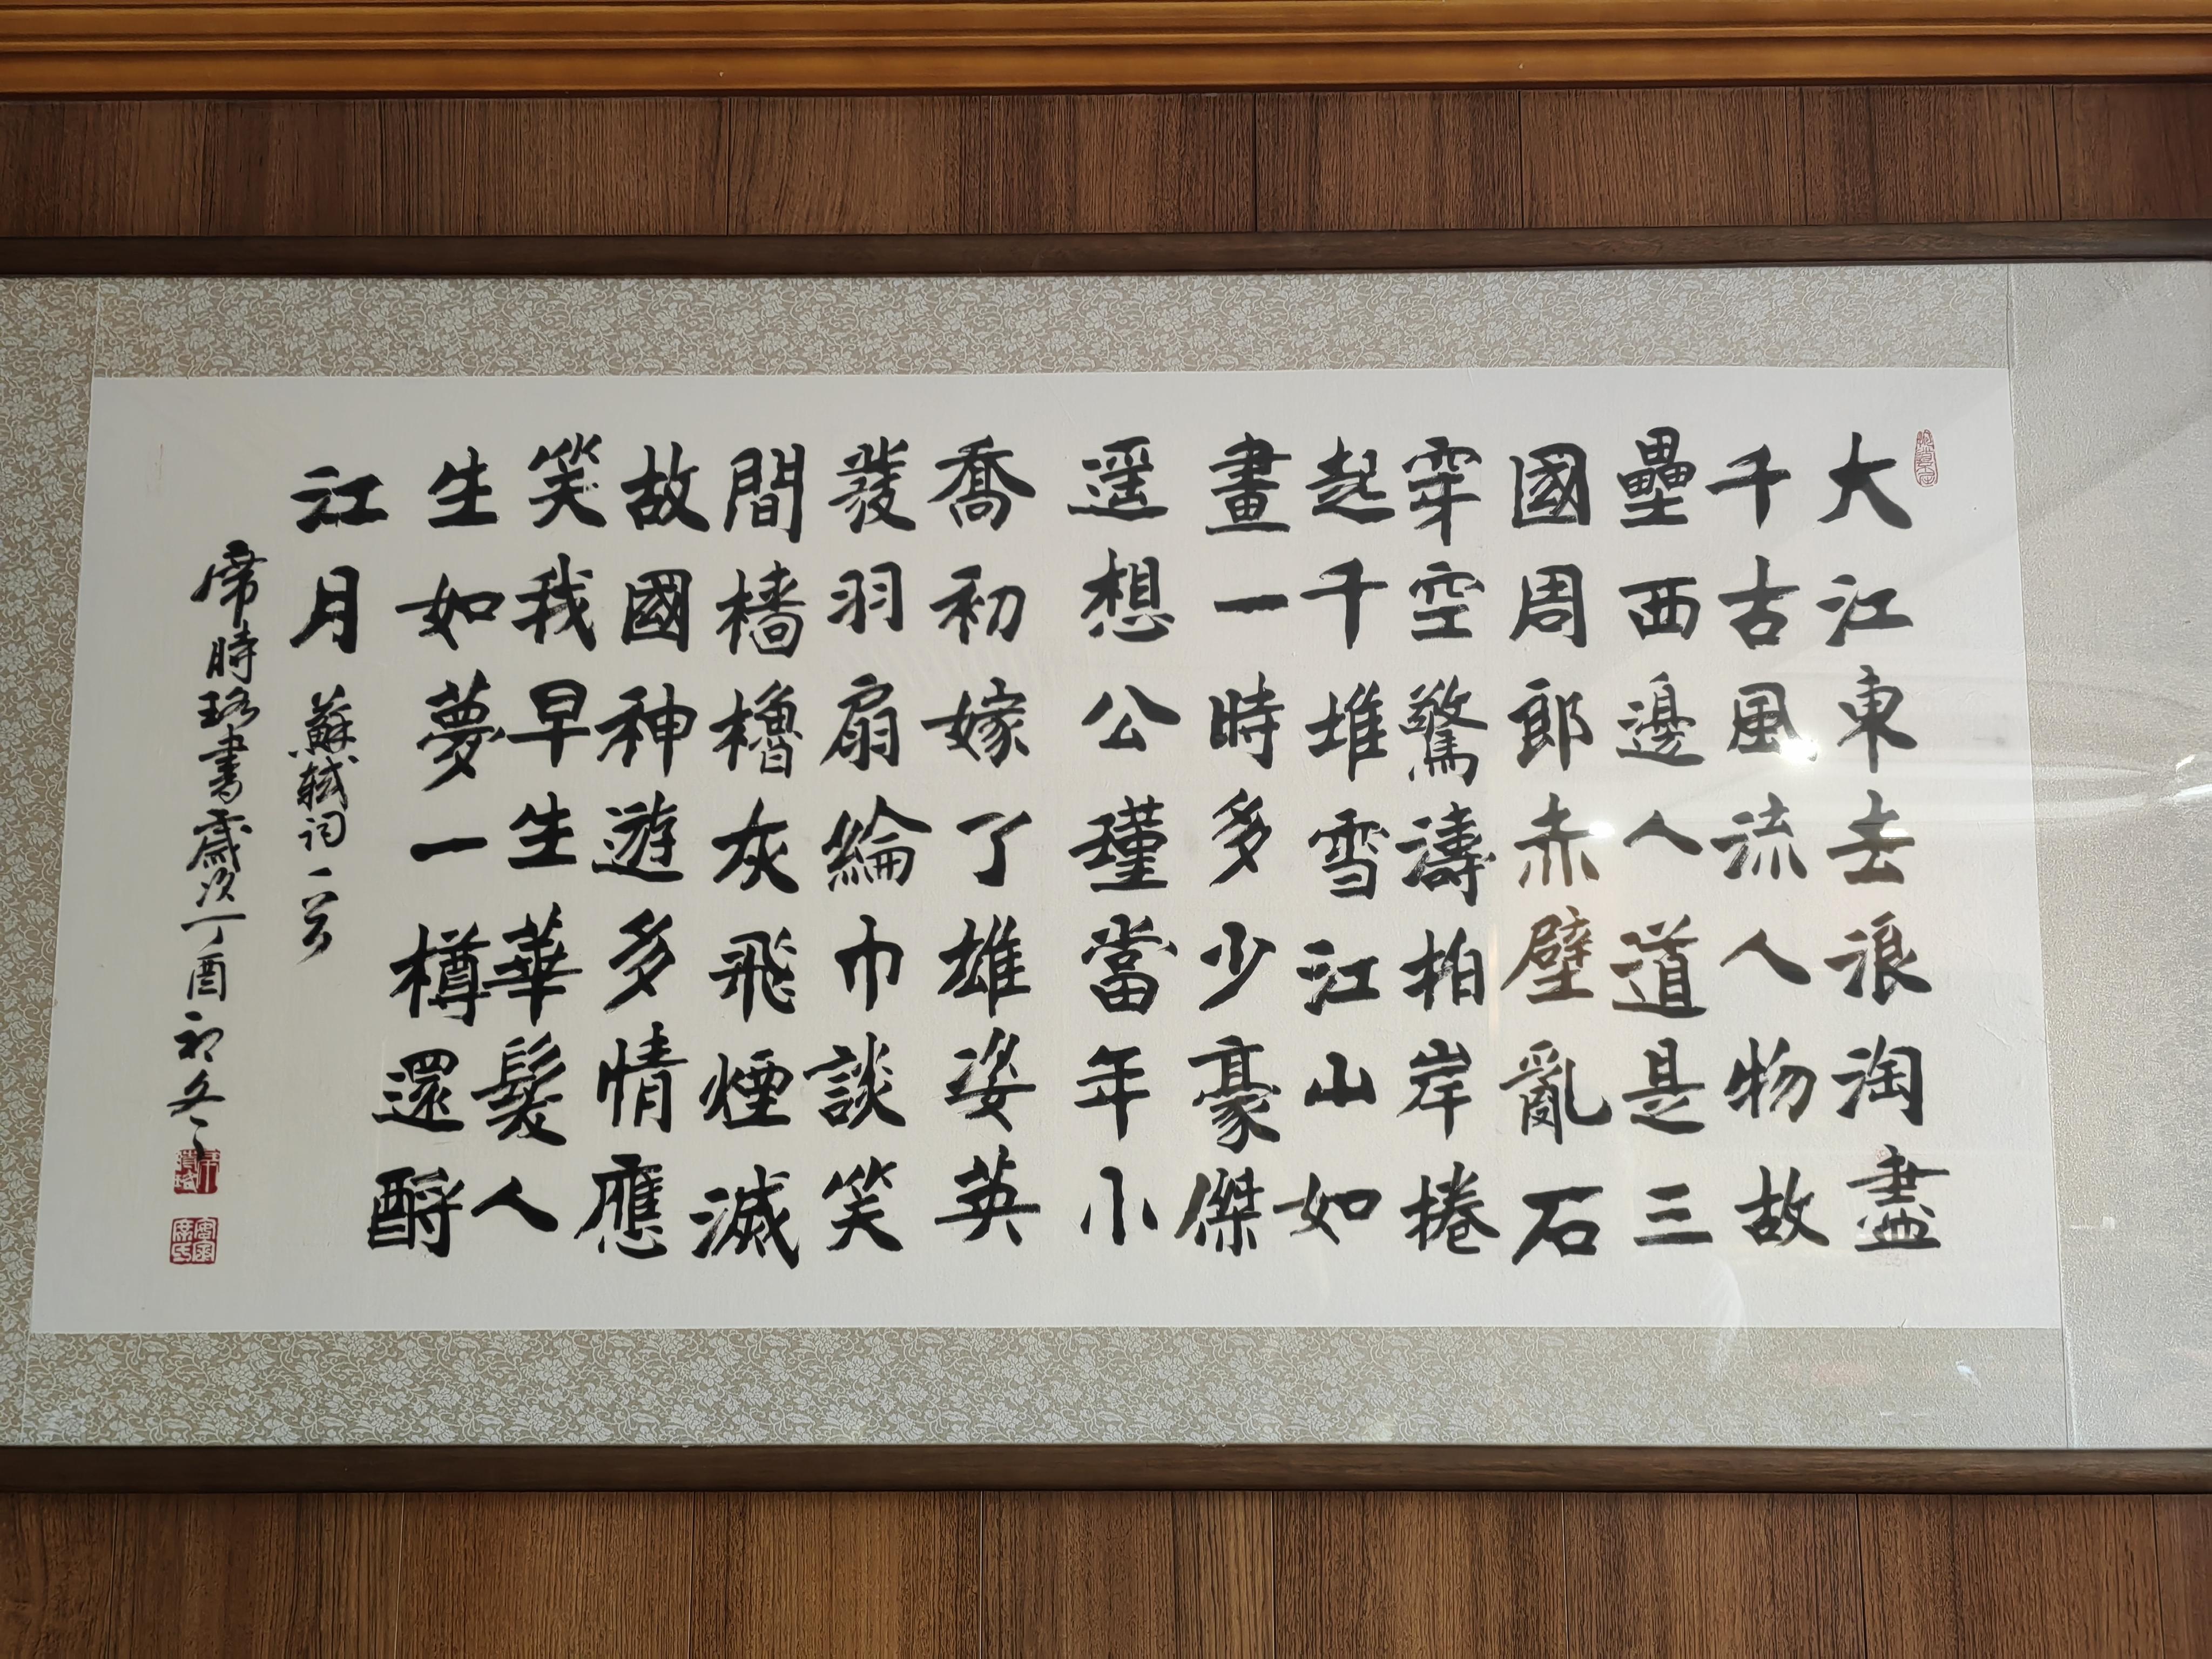 大江東去浪淘盡
千古風流人物故
壘西邊人道是三
國周郎赤壁亂石
穿空驚濤拍岸捲
起千堆雪江山如
畫一時多少豪傑
遥想公瑾當年小
喬初嫁了雄姿英
發羽扇綸巾談笑
間檣櫓灰飛煙滅
故國神遊多情應
笑我早生華髮人
生如夢一樽還酹
江月 蘇軾詞一首
席時珞書歲次丁酉初冬